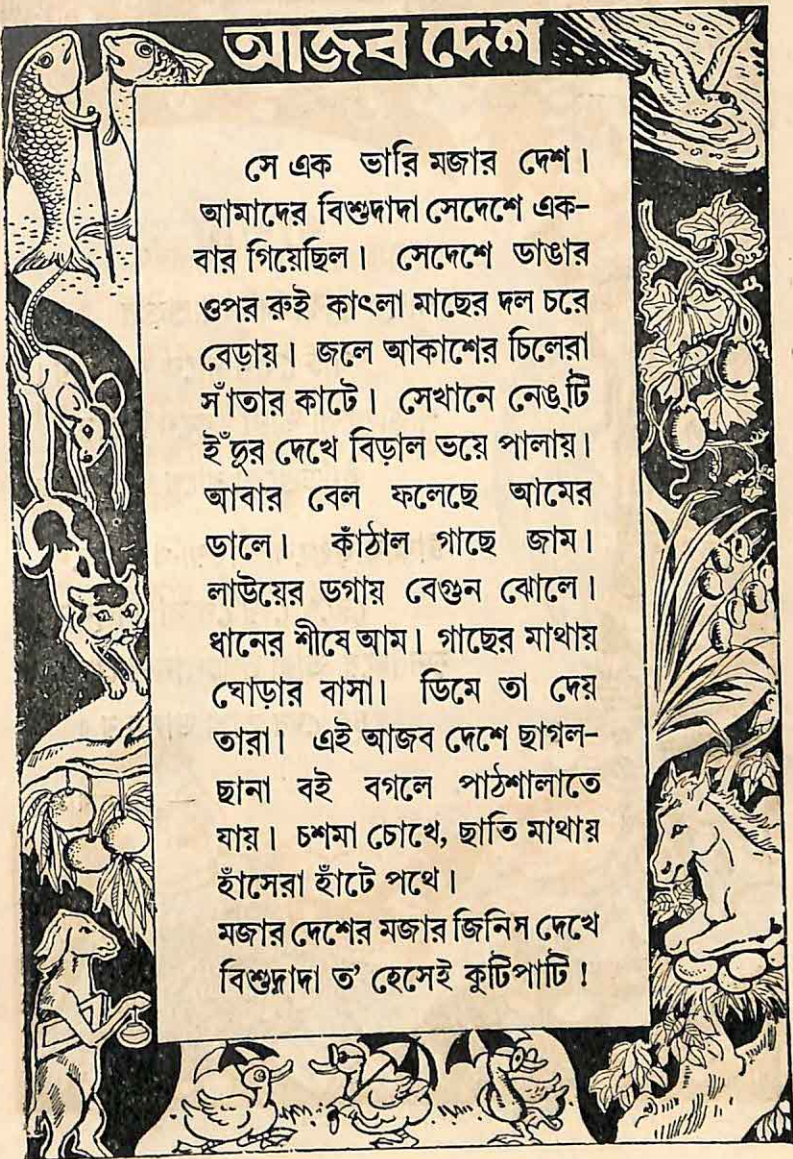 আজব দেশ
সে এক ভারি মজার দেশ।
আমাদের বিশুদাদা সেদেশে এক-
বার গিয়েছিল। সেদেশে ডাঙার
ওপর রুই কাৎলা মাছের দল চরে
বেড়ায়। জলে আকাশের চিলেরা
সাঁতার কাটে। সেখানে নেঙ্টি
ইঁদুর দেখে বিড়াল ভয়ে পালায়।
আবার বেল ফলেছে আমের
ডালে। কাঁঠাল গাছে জাম।
লাউয়ের ডগায় বেগুন ঝোলে।
ধানের শীষে আম। গাছের মাথায়
ঘোড়ার বাসা। ডিমে তা দেয়
তারা। এই আজব দেশে ছাগল-
ছানা বই বগলে পাঠশালাতে
যায়। চশমা চোখে, ছাতি মাথায়
হাঁসেরা হাঁটে পথে।
মজার দেশের মজার জিনিস দেখে
বিশুদাদা ত' হেসেই কুটিপাটি!